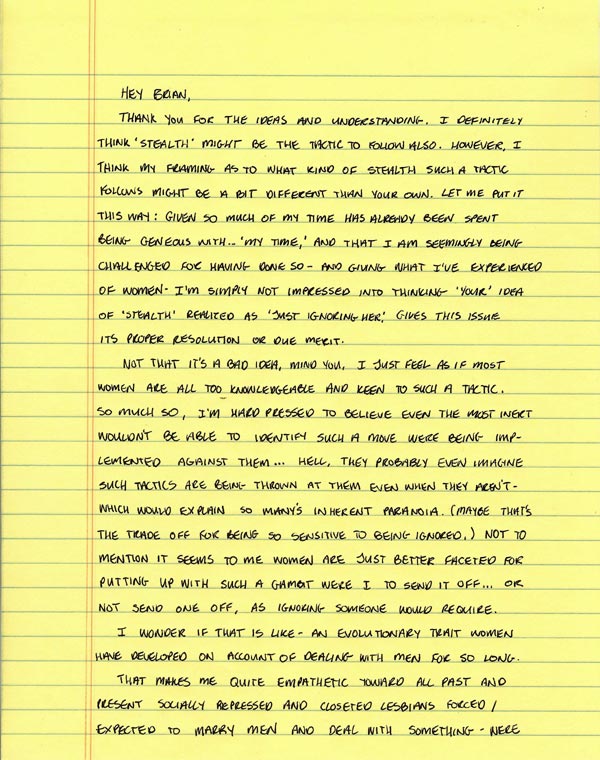 HEY BRIAN,
THANK YOU FOR THE IDEAS AND UNDERSTANDING. I DEFINITELY
THINK 'STEALTH' MIGHT BE THE TACTIC TO FOLLOW ALSO. HOWEVER, I
THINK MY FRAMING AS TO WHAT KIND OF STEALTH SUCH A TACTIC
FOLLOWS MIGHT BE A BIT DIFFERENT THAN YOUR OWN. LET ME PUT IT
THIS WAY: GIVEN SO MUCH OF MY TIME HAS ALREADY BEEN SPENT
BEING GENEOUS WITH... 'MY TIME,' AND THAT I AM SEEMINGLY BEING
CHALLENGED FOR HAVING DONE SO - AND GIVING WHAT I'VE EXPERIENCED
OF WOMEN - I'M SIMPLY NOT IMPRESSED INTO THINKING 'YOUR' IDEA
OF 'STEALTH' REALIZED AS 'JUST IGNORING HER,' GIVES THIS ISSUE
ITS PROPER RESOLUTION OR DUE MERIT.
NOT THAT IT'S A BAD IDEA, MIND YOU, I JUST FEEL AS IF MOST
WOMEN ARE ALL TOO KNOWLEDGEABLE AND KEEN TO SUCH A TACTIC.
SO MUCH SO, I'M HARD PRESSED TO BELIEVE EVEN THE MOST INERT
WOULDN'T BE ABLE TO IDENTIFY SUCH A MOVE WERE BEING IMP-
LEMENTED AGAINST THEM... HELL, THEY PROBABLY EVEN IMAGINE
SUCH TACTICS ARE BEING THROWN AT THEM EVEN WHEN THEY AREN'T -
WHICH WOULD EXPLAIN SO MANY'S INHERENT PARANOIA. (MAYBE THAT'S
THE TRADE OFF FOR BEING SO SENSITIVE TO BEING IGNORED.) NOT TO
MENTION IT SEEMS TO ME WOMEN ARE JUST BETTER FACETED FOR
PUTTING UP WITH SUCH A GAMBIT WERE I TO SEND IT OFF... OR
NOT SEND ONE OFF, AS IGNORING SOMEONE WOULD REQUIRE.
I WONDER IF THAT IS LIKE - AN EVOLUTIONARY TRAIT WOMEN
HAVE DEVELOPED ON ACCOUNT OF DEALING WITH MEN FOR SO LONG.
THAT MAKES ME QUITE EMPATHETIC TOWARD ALL PAST AND
PRESENT SOCIALLY REPRESSED AND CLOSETED LESBIANS FORCED /
EXPECTED TO MARRY MEN AND DEAL WITH SOMETHING - WERE